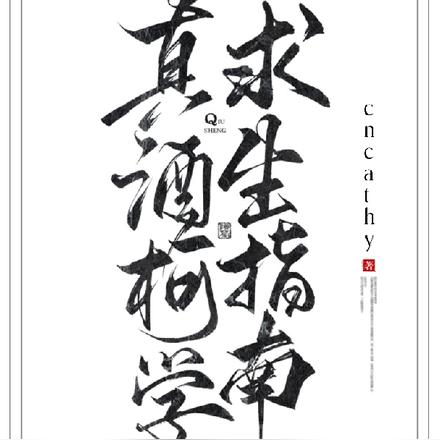 真酒柯学
求生指南
QIU
SHENG
cncathy
著